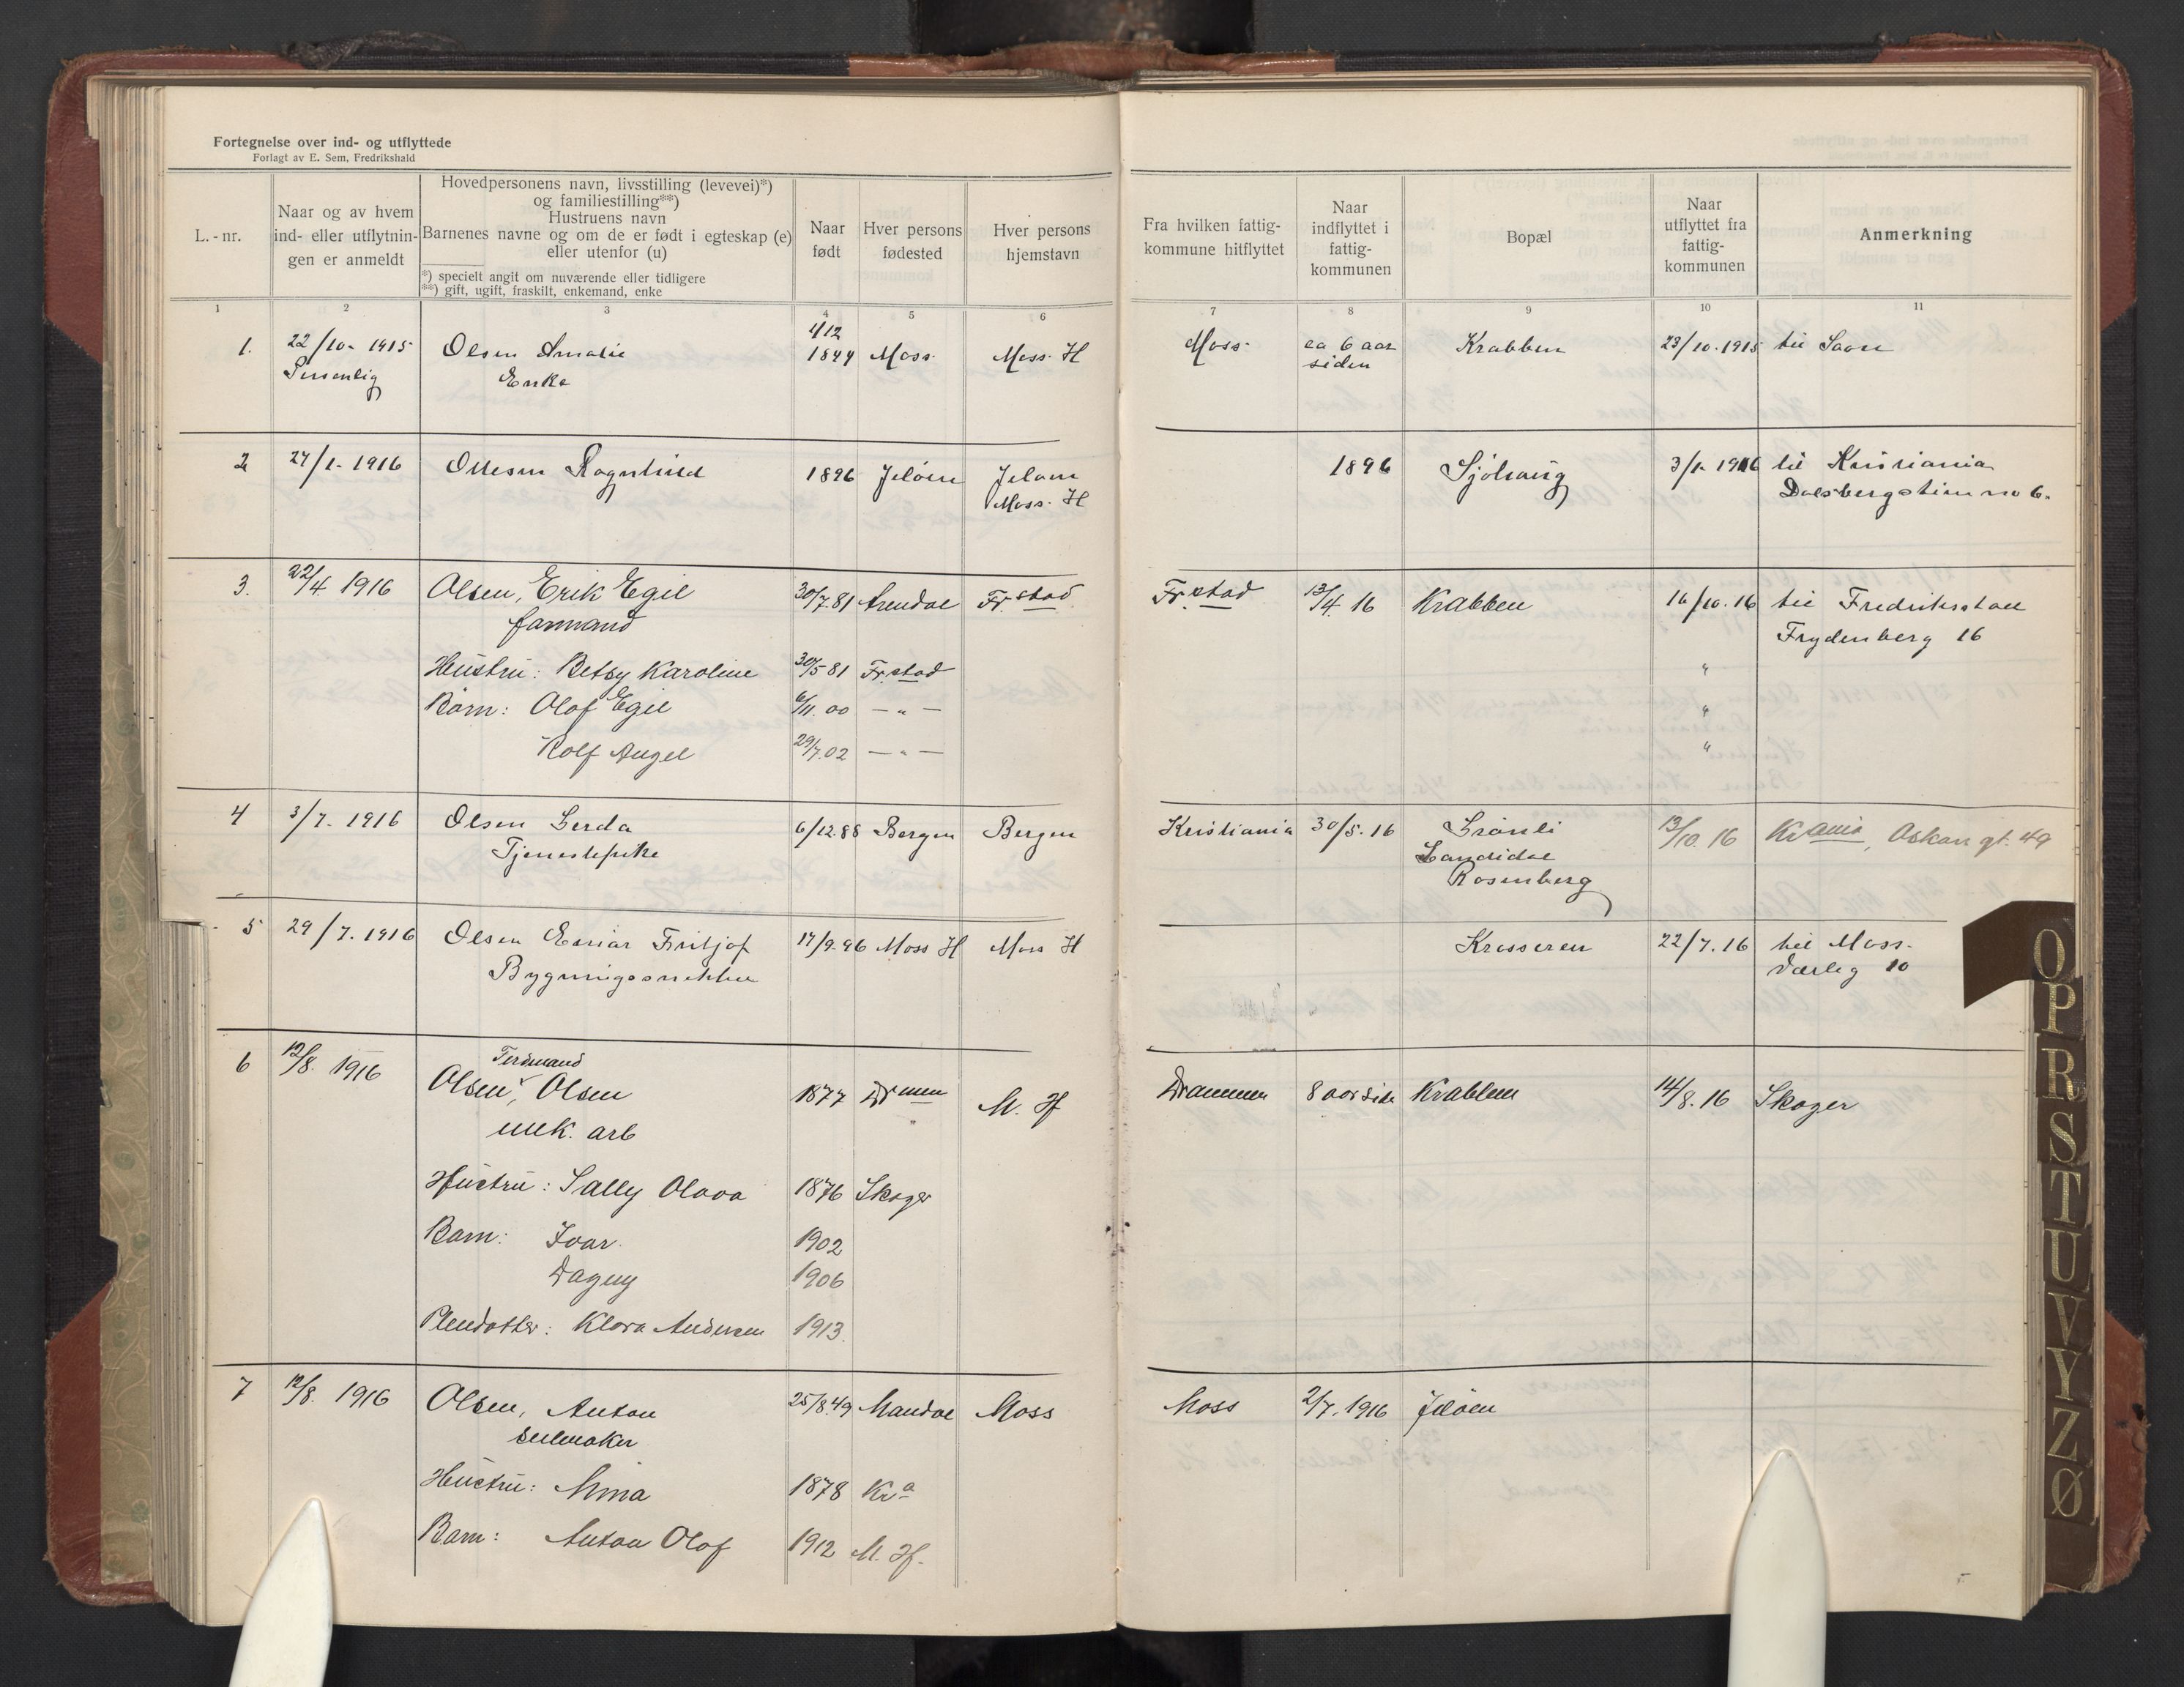 Fortegnelse over ind- og utflyttede
Forlagt av E. Sem, Fredrikshald
L.-nr.
Naar og av hvem
ind- eller utflytnin-
gen er anmeldt
Hovedpersonens navn, livsstilling (levevei)*)
og familiestilling**)
Hustruens navn
Barnenes navne og om de er født i egteskap (e)
eller utenfor (u)
*) specielt angit om nuværende eller tidligere
**) gift, ugift, fraskilt, enkemand, enke
Naar
født
Hver persons
fødested
Hver persons
hjemstavn
Fra hvilken fattig-
kommune hitflyttet
Naar
indflyttet i
fattig-
kommunen
Bopæl
Naar
utflyttet fra
fattig-
kommunen
Anmerkning
1 2 3 4 5 6 7 8 9 10 11
4/12
1. 22/10- 1915 Olsen Amalie 1844 Moss Moss H Moss ca 6 aar Krabben 23/10.1915 til Saon
Personlig Enke siden
2 27/1- 1916 Ottesen Ragnhild 1896 Jeløen Jeløen 1896 3/1- 1916 til Kristiania
Moss. H no 6.
3. 22/4 1916 Olsen, Erik Egil 30/7.81 Arendal Fr.stad Fr.stad 13/4 16 Krabben 16/10.16 til Fredriksstad
formand Frydenberg 16
Hustru: Betsy Karoline 30/5 81 Fr.stad "
Barn: Olaf Egil 6/11.00 — " — "
Rolf Angel 29/7.02 — " — "
4 3/7- 1916 Olsen Gerda 6/12.88 Bergen Bergen Kristiania 30/5.16 Grönli 13/10.16 Kr.ania, Askergt. 49
Tjenestepike
Rosenberg
5 29/7.1916 Olsen Einar Fritjof 17/9.96 Moss H Moss H Krosseren 22/7.16 til Moss
Bygningssnekker Værleg 10
Ferdinand
6 12/8. 1916 Olsen, Olsen 1877 Dr.men M. H Drammen 8 aar side Krabben 14/8.16 Skoger
mek. arb "
Hustru: Sally Olava 1876 Skoger
Barn: Ivar 1902
Dagny 1906
Pleiedatter: Klara Andersen 1913.
7 12/8. 1916 Olsen, Anton 25/8.49 Mandal Moss Moss 2/7.1916 Jeløen
seilmaker
Hustru: Mina 1878 Kr.a
Barn: Anton Olaf 1912 M. H.
O
P
R
S
T
U
V
Y
Z
Ø